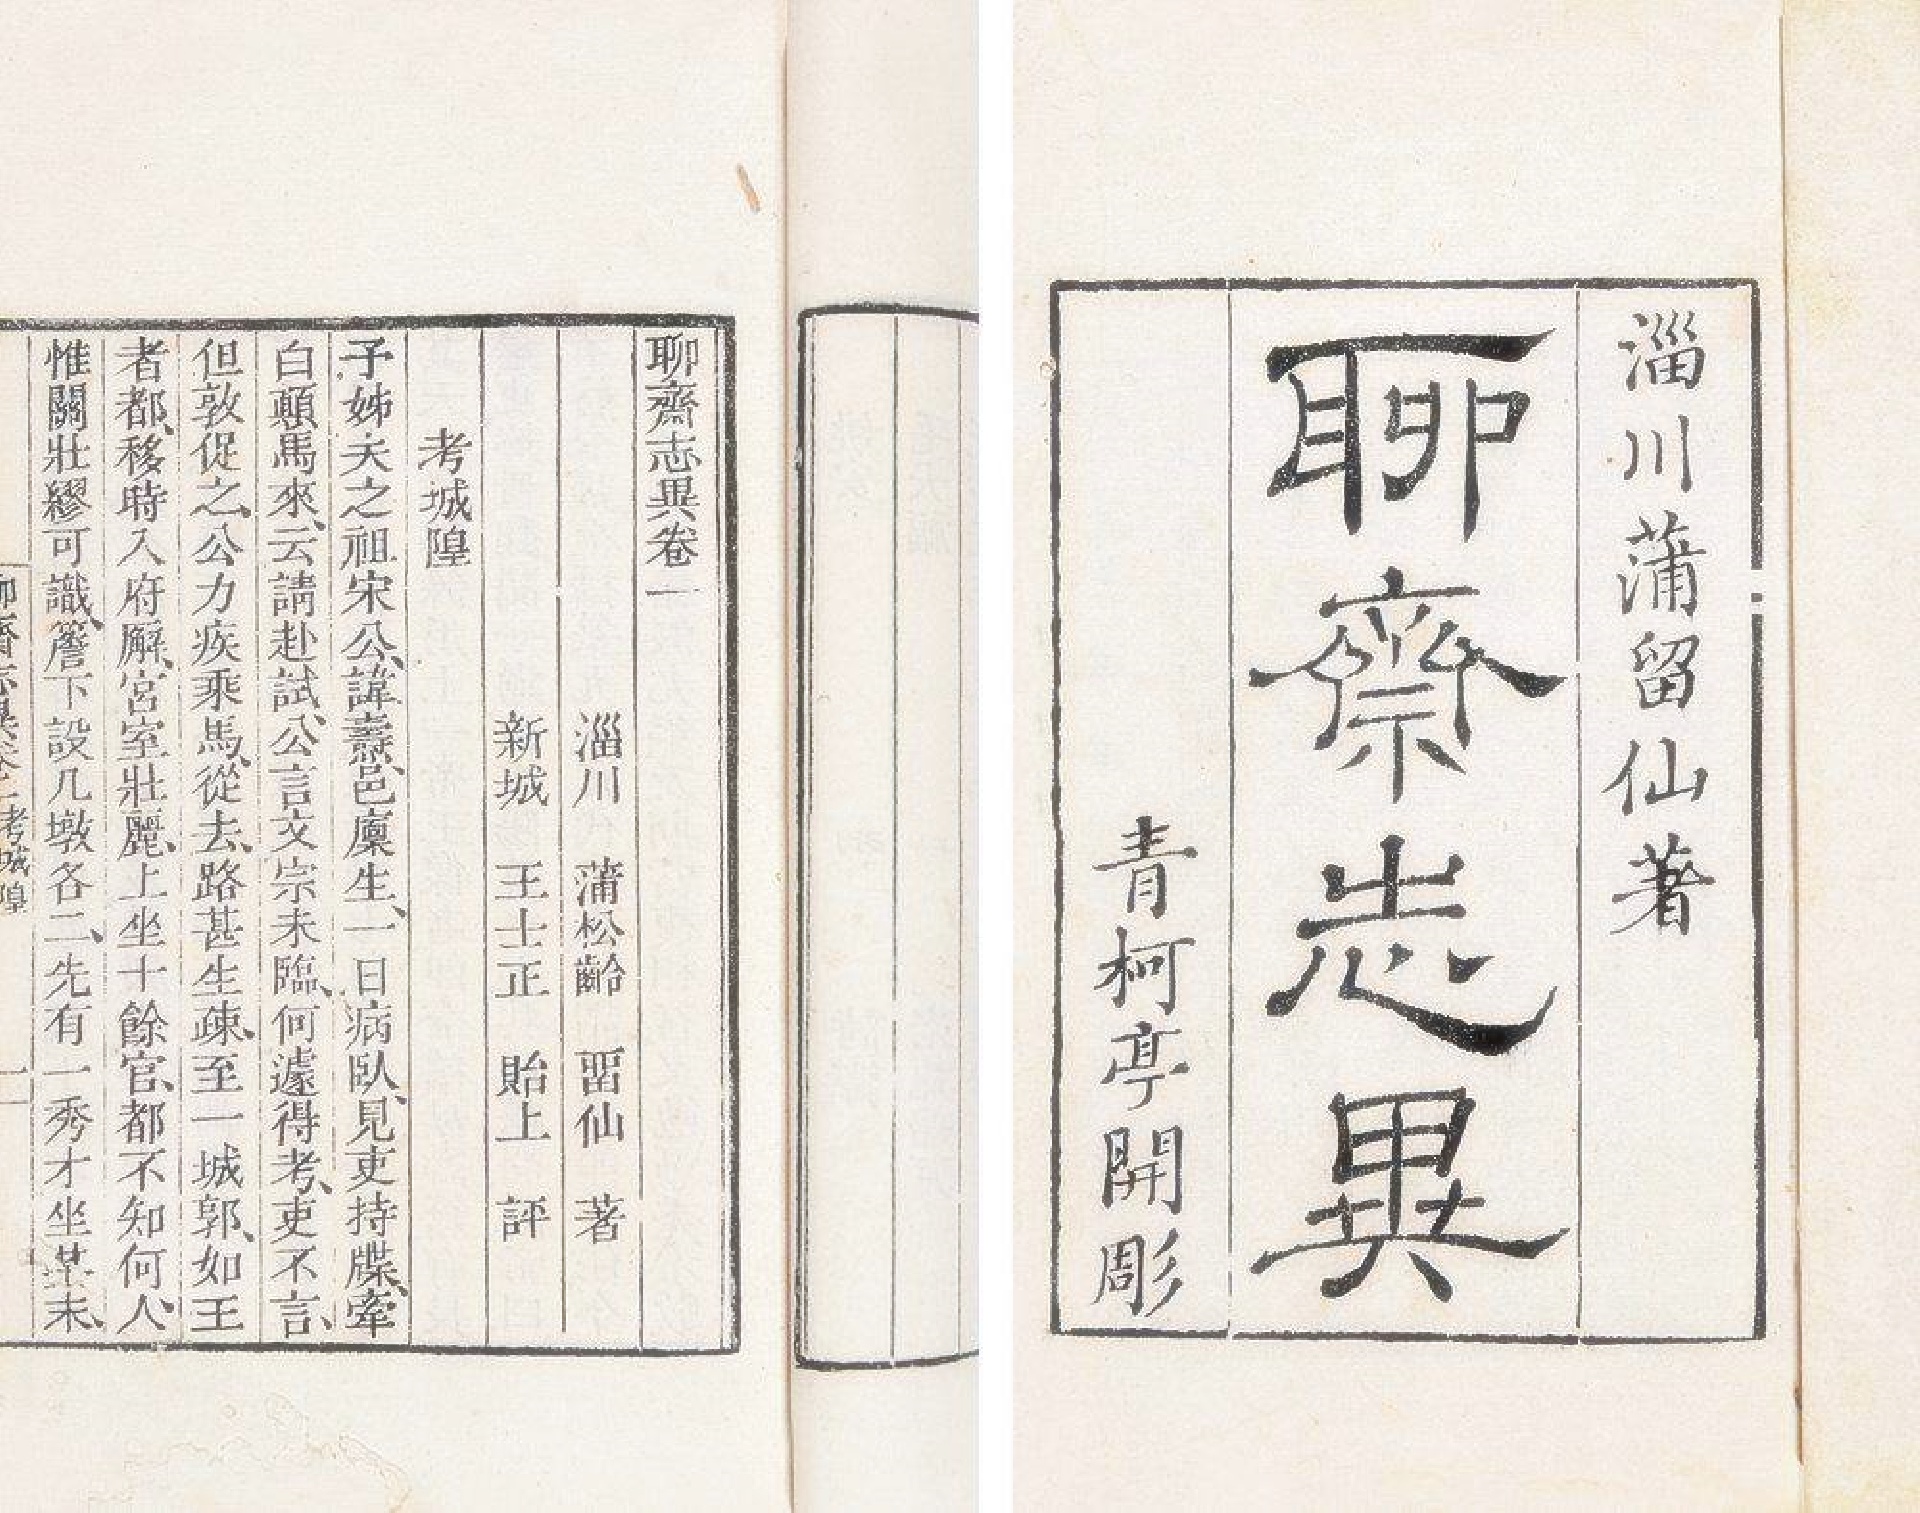 淄川蒲留仙著
聊齋志異
青柯亭開彫
聊齋志異卷一
淄川 蒲松齡 畱仙 著
新城 王士正 貽上 評
考城隍
予姊夫之祖宋公、諱燾、邑廩生、一日病臥、見吏持牒、牽
白顛馬來、云請赴試、公言文宗未臨、何遽得考、吏不言、
但敦促之、公力疾乘馬、從去、路甚生疎、至一城郭、如王
者都、移時入府廨、宮室壯麗、上坐十餘官、都不知何人、
惟關壯繆可識、簷下設几墩各二、先有一秀才坐其末、
聊齋志異卷一 考城隍 一